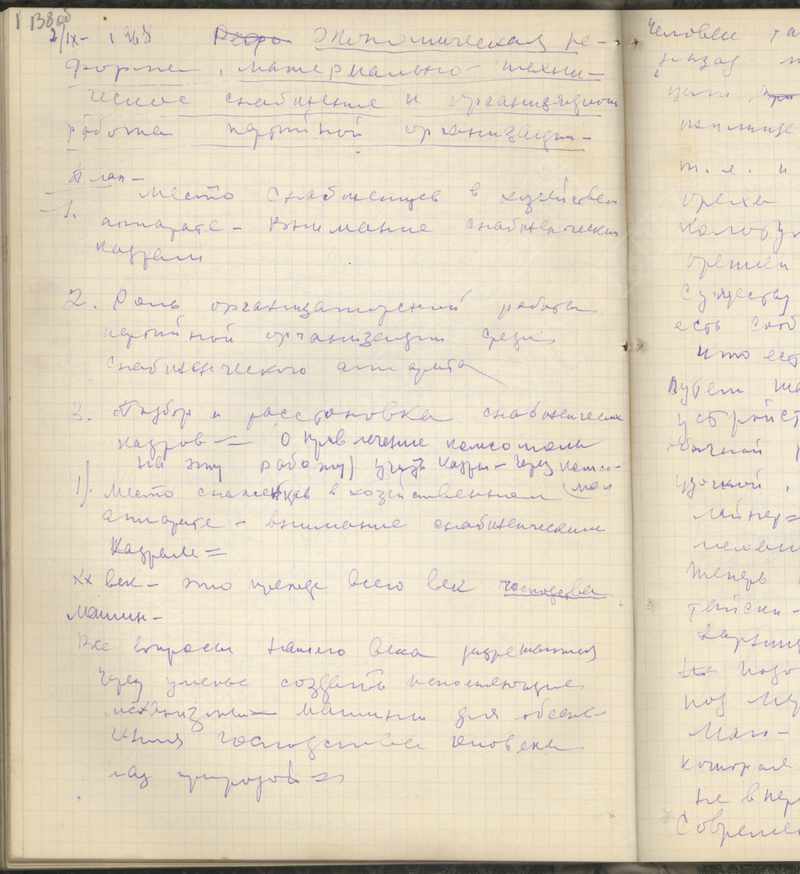 2/IX- 1968 Экономическая ре-
форма, материально-техни-
ческое снабжение и организацион
работа партийной организации-
План-
1. Место снабженцев в хозяйствен
аппарате - внимание снабженческим
кадрам
2. Роль организаторской работы
партийной организации среди
снабженческого аппарата
3. Подбор и расстановка снабженческих
кадров = О привлечение комсомола
на эту работу учить кадры - через комсо-
мол
1). Место снабженцев в хозяйственном
аппарате - внимание снабженческим
кадрам =
XX век - это прежде всего век господства
машин-
Все вопросы нашего века разрешаются
через умение создать
машины для обеспе
чения господства человека
над природой =
Человек
назад
т.е. и
орехи
существу
есть
что есть
путем
устройст
обычной
теперь
под
мало-
которая
не впер
Современ